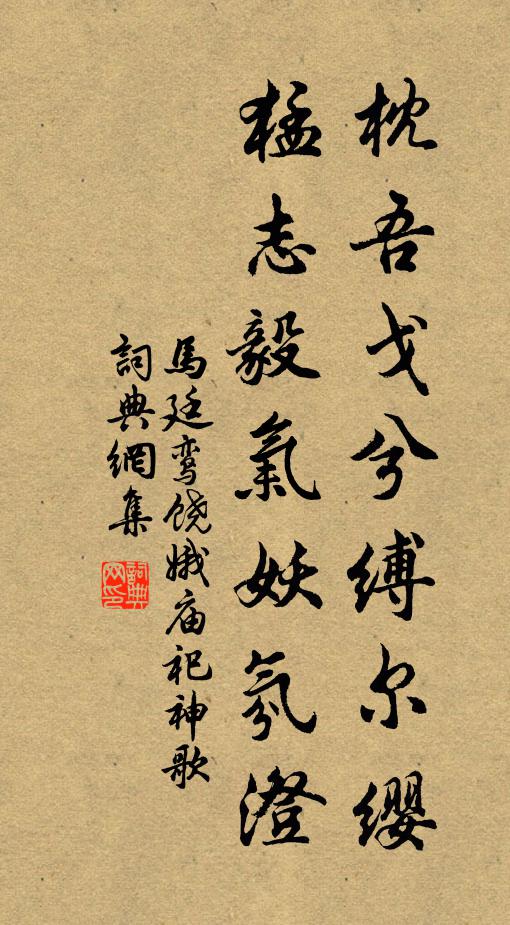 枕吾戈兮缚尔缨
猛志毅氣妖氛澄
馬廷鸾饶娥庙祀神歌
詞典網集
詞典网印